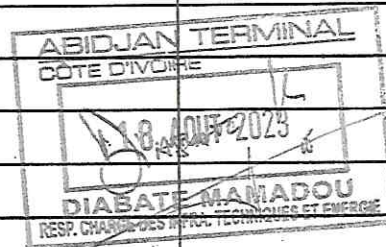 ABIDJAN TERMINAL
CÔTE D'IVOIRE
18 AOUT 2023
DIABATE MAMADOU
RESP. CHARGE DES INFRA. TECHNIQUES ET ENERGIE